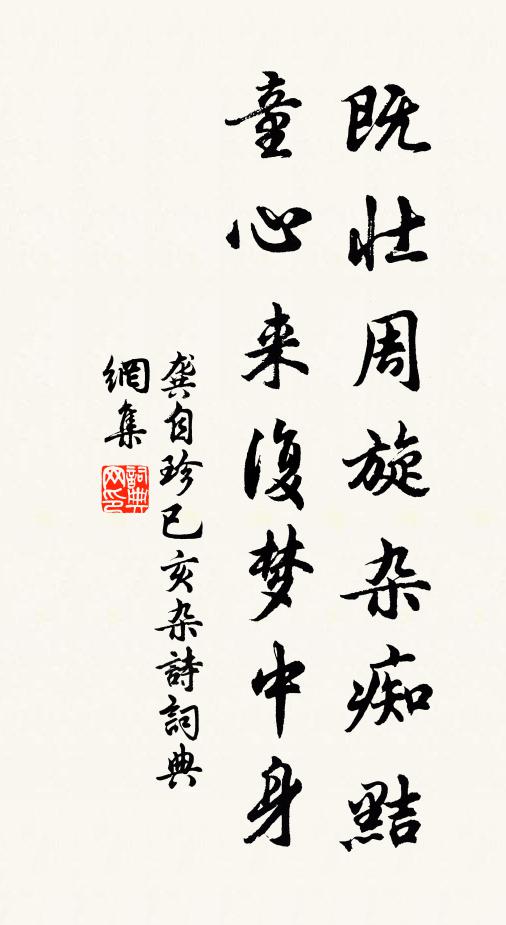 既壮周旋杂痴黠
童心来复梦中身
龚自珍己亥杂詩詞典
網集
詞典
网印